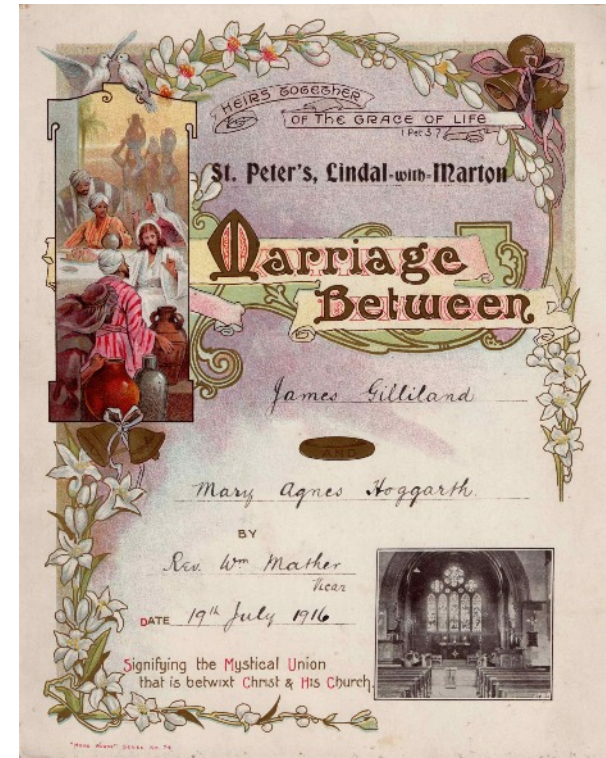 HEIRS TOGETHER
OF THE GRACE OF LIFE
1 Pet 3 7
St. Peter's, Lindal-with-Marton
Marriage
Between
James Gilliland
AND
Mary Agnes Hoggarth.
BY
Rev. Wm Mather
Vicar
DATE 19th July 1916
Signifying the Mystical Union
that is betwixt Christ & His Church.
"HOME WORDS" SERIES NO. 74.